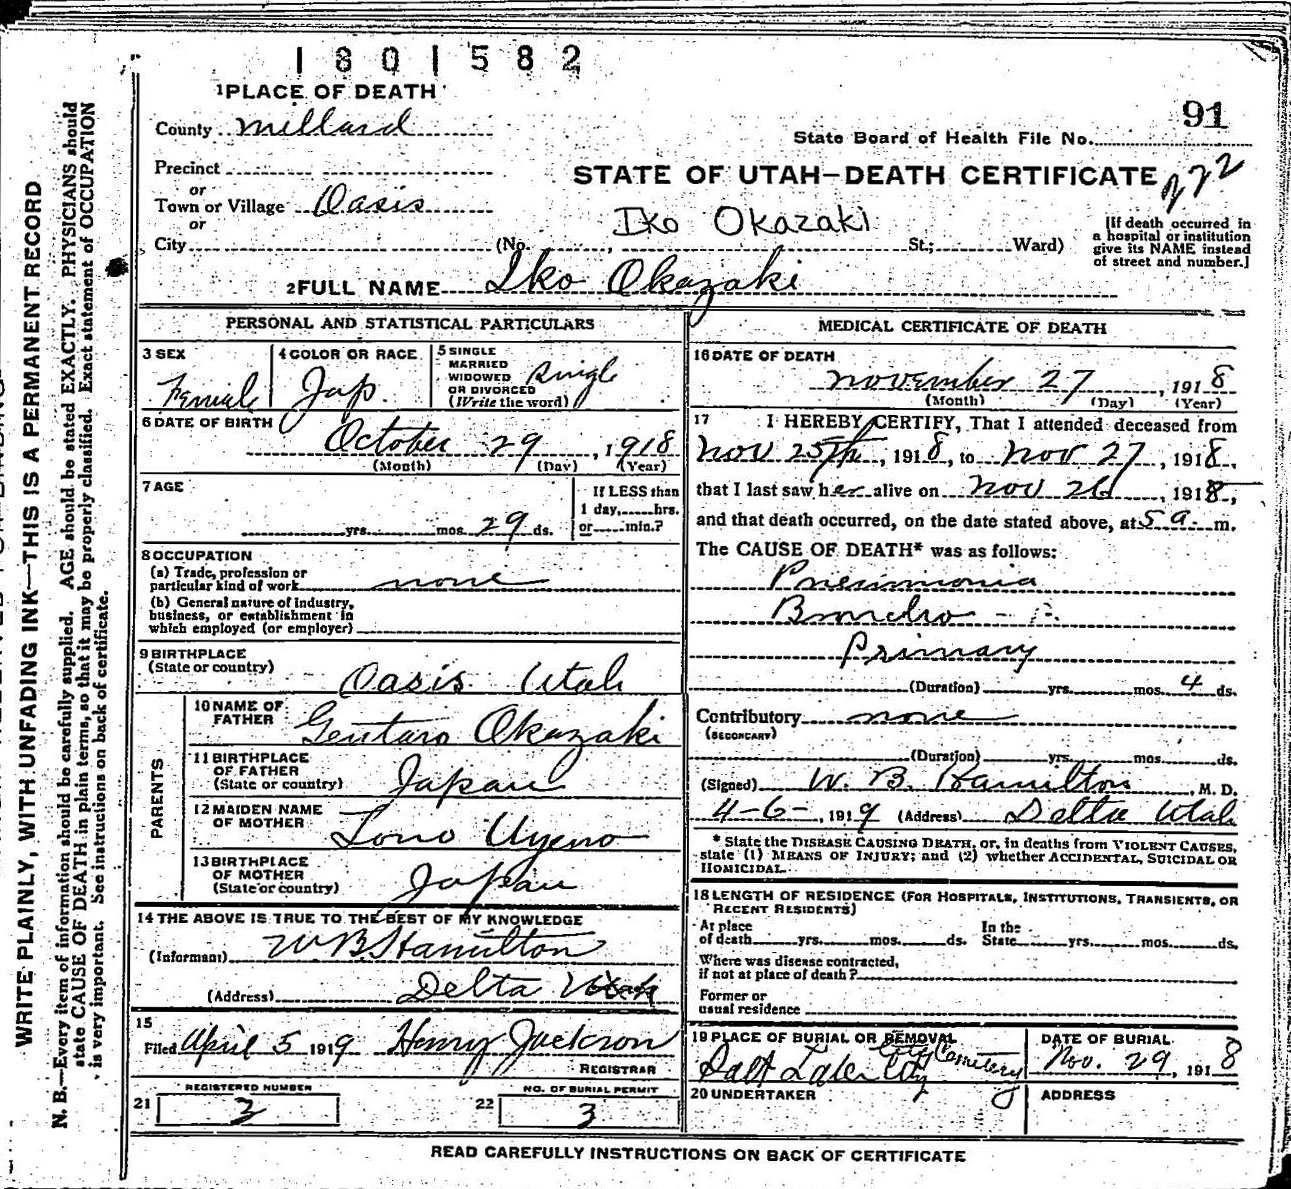 1801582
1 PLACE OF DEATH
County Millard
91
State Board of Health File No.
Precinct
or
STATE OF UTAH—DEATH CERTIFICATE
222
Town or Village Oasis
or
Iko Okazaki
City (No. , St.; Ward)
[If death occurred in
a hospital or institution
give its NAME instead
of street and number.]
2 FULL NAME Iko Okazaki
PERSONAL AND STATISTICAL PARTICULARS
3 SEX
Female
4 COLOR OR RACE
Jap.
5 SINGLE
MARRIED
WIDOWED
OR DIVORCED
(Write the word)
Single
6 DATE OF BIRTH
October 29, 1918
(Month) (Day) (Year)
7 AGE
yrs. mos. 29 ds.
If LESS than
1 day, hrs.
or min.?
8 OCCUPATION
(a) Trade, profession or
particular kind of work none
(b) General nature of industry,
business, or establishment in
which employed (or employer)
9 BIRTHPLACE
(State or country)
Oasis Utah
PARENTS
10 NAME OF
FATHER
Gentaro Okazaki
11 BIRTHPLACE
OF FATHER
(State or country)
Japan
12 MAIDEN NAME
OF MOTHER
Tono Uyeno
13 BIRTHPLACE
OF MOTHER
(State or country)
Japan
14 THE ABOVE IS TRUE TO THE BEST OF MY KNOWLEDGE
(Informant) W. B. Hamilton
(Address) Delta Utah
15
Filed April 5 1919 Henry Jackson
REGISTRAR
REGISTERED NUMBER
21 3
NO. OF BURIAL PERMIT
22 3
MEDICAL CERTIFICATE OF DEATH
16 DATE OF DEATH
November 27, 1918
(Month) (Day) (Year)
17 I HEREBY CERTIFY, That I attended deceased from
Nov 25th, 1918, to Nov 27, 1918,
that I last saw her alive on Nov 26, 1918,
and that death occurred, on the date stated above, at 5 a. m.
The CAUSE OF DEATH* was as follows:
Pneumonia
Broncho -
Primary
(Duration) yrs. mos. 4 ds.
Contributory none
(SECONDARY)
(Duration) yrs. mos. ds.
(Signed) W. B. Hamilton, M. D.
4-6-, 1919 (Address) Delta Utah
* State the DISEASE CAUSING DEATH, or, in deaths from VIOLENT CAUSES,
state (1) MEANS OF INJURY; and (2) whether ACCIDENTAL, SUICIDAL OR
HOMICIDAL.
18 LENGTH OF RESIDENCE (FOR HOSPITALS, INSTITUTIONS, TRANSIENTS, OR
RECENT RESIDENTS)
At place
of death yrs. mos. ds.
In the
State yrs. mos. ds.
Where was disease contracted,
if not at place of death?
Former or
usual residence
19 PLACE OF BURIAL OR REMOVAL
City Cemetery
Salt Lake City
DATE OF BURIAL
Nov. 29, 1918
20 UNDERTAKER
ADDRESS
READ CAREFULLY INSTRUCTIONS ON BACK OF CERTIFICATE
WRITE PLAINLY, WITH UNFADING INK—THIS IS A PERMANENT RECORD
N. B.—Every item of information should be carefully supplied. AGE should be stated EXACTLY. PHYSICIANS should
state CAUSE OF DEATH in plain terms, so that it may be properly classified. Exact statement of OCCUPATION
is very important. See instrucions on back of certificate.